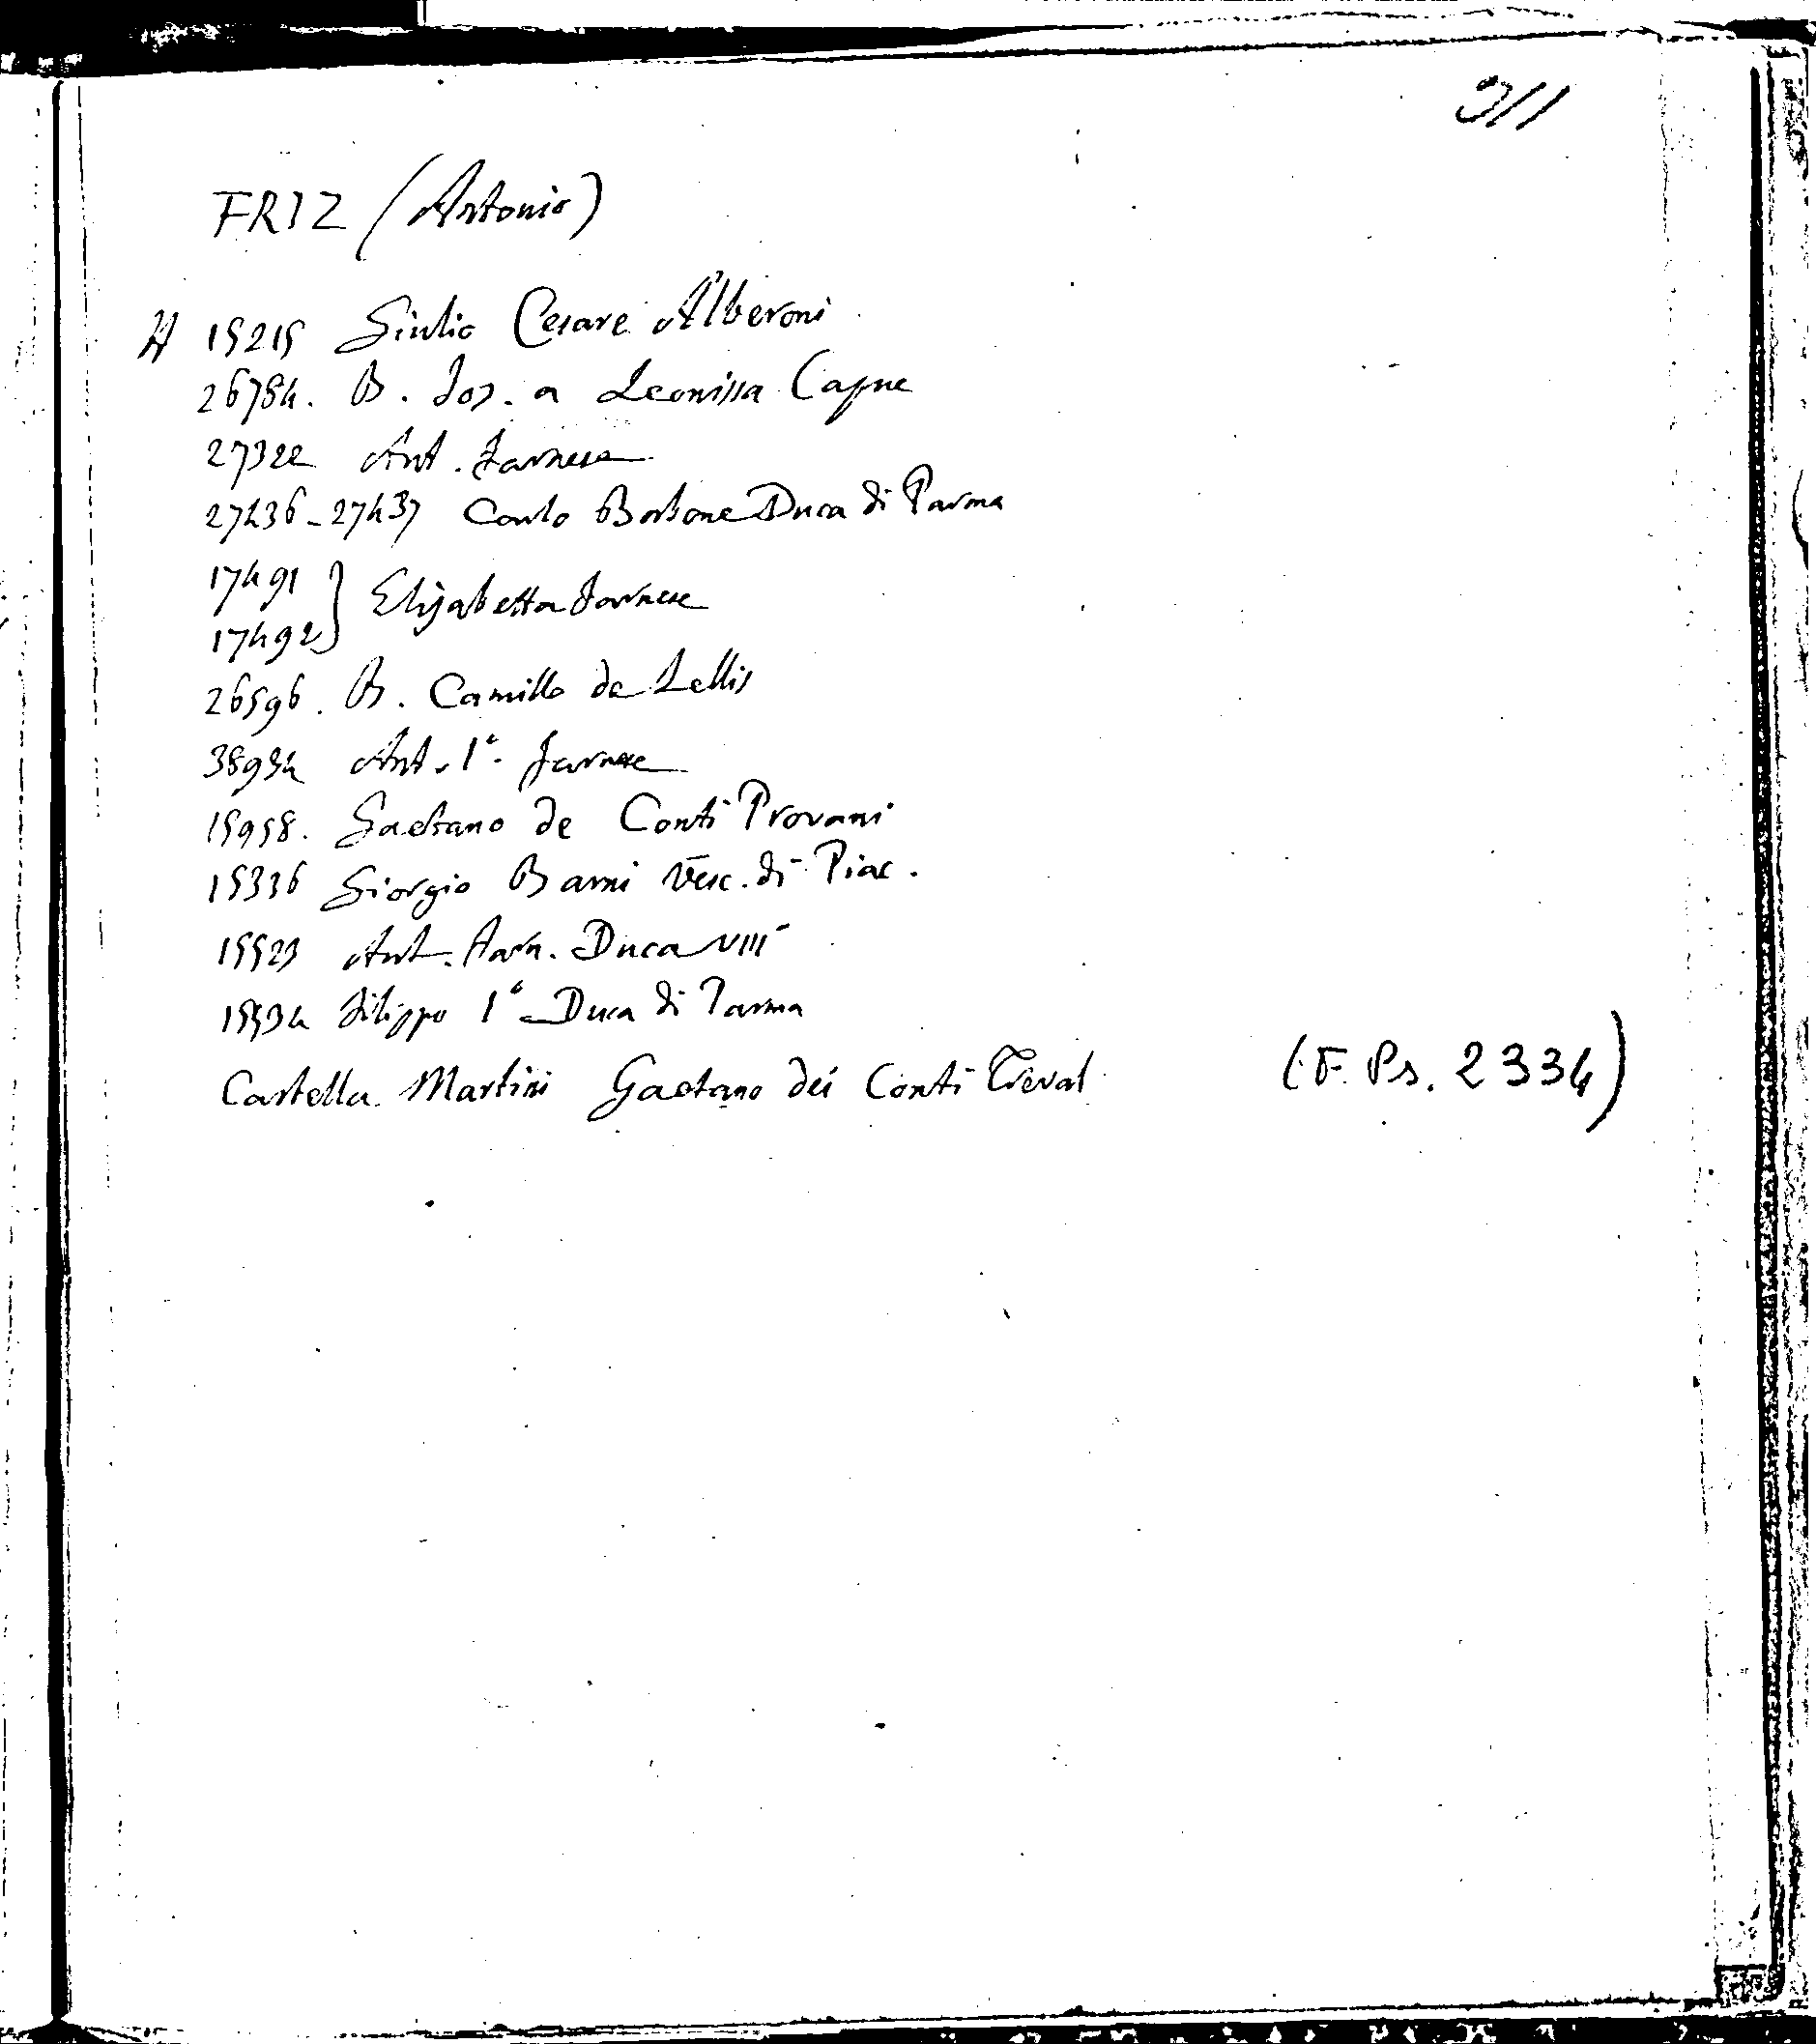 911
FRIZ (Antonio)
A 15215 Giulio Cesare Alberoni
26784. B. Jos. a Leonissa Capuc
27322 Ant. Farnese
27436-27437 Carlo Borbone Duca di Parma
17491
17492 } Elisabetta Farnese
26596. B. Camillo de Lellis
38934 Ant. I° Farnese
15958. Gaetano de Conti Provani
15336 Giorgio Barni Vesc. di Piac.
15523 Ant. Farn. Duca VIII
15534 Filippo I° Duca di Parma
Castella Martini Gaetano dei Conti Treval (F. Ps. 2334)